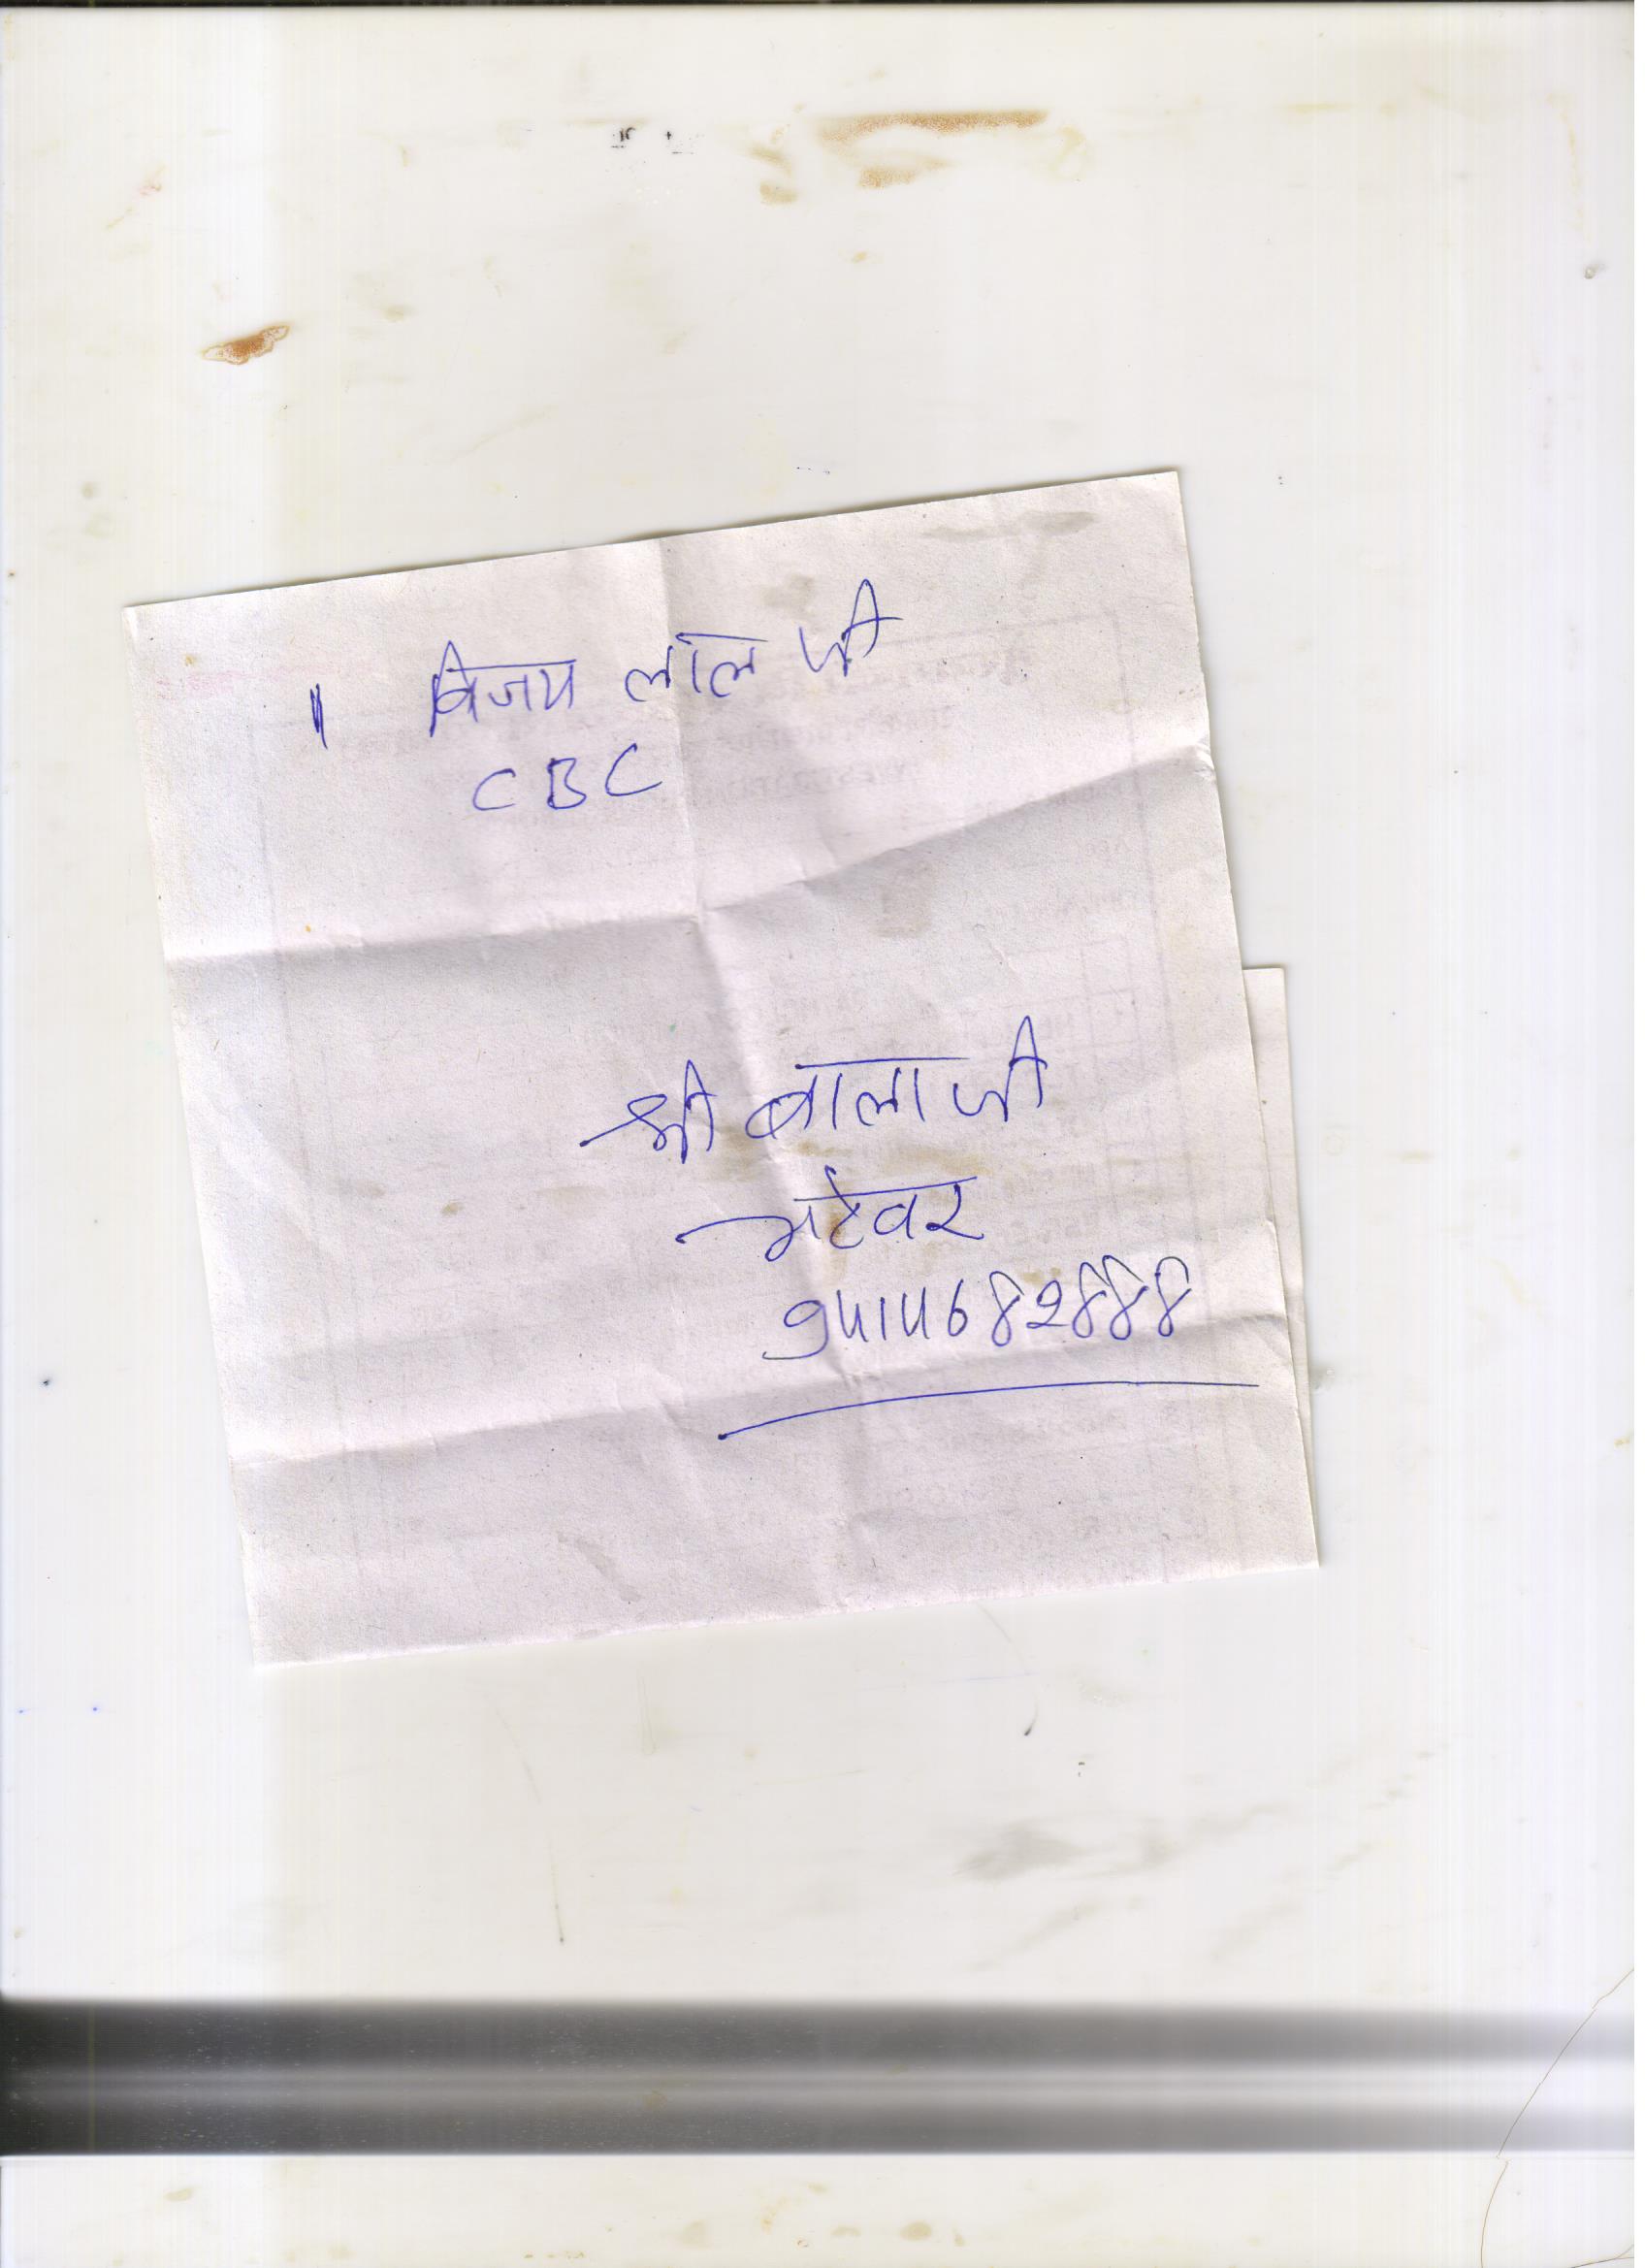 ॥ विजय लाल जी
CBC
श्री बालाजी
भटेवर
9414682888